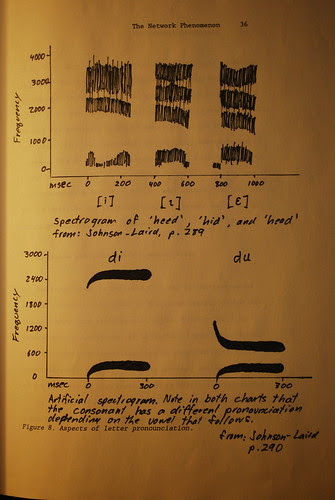 The Network Phenomenon 36
Frequency
4000
3000
2000
1000
0
msec 0 200 400 600 800 1000
[i] [ɩ] [ɛ]
Spectrogram of 'heed', 'hid', and 'head'
from: Johnson-Laird, p. 289
di du
Frequency
3000
2400
1800
1200
600
0
msec 0 300 0 300
Artificial spectrogram. Note in both charts that
the consonant has a different pronounciation
depending on the vowel that follows.
Figure 8. Aspects of letter pronounciation.
from: Johnson-Laird
p. 290